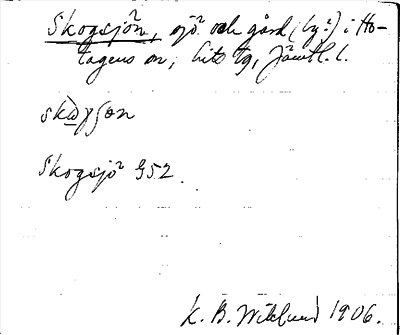 Skogsjön, sjö och gård (by?) i Ho-
tagens sn, Lits tg, Jämtl. l.
skogsjon
Skogsjö G52.
K. B. Wiklund 1906.